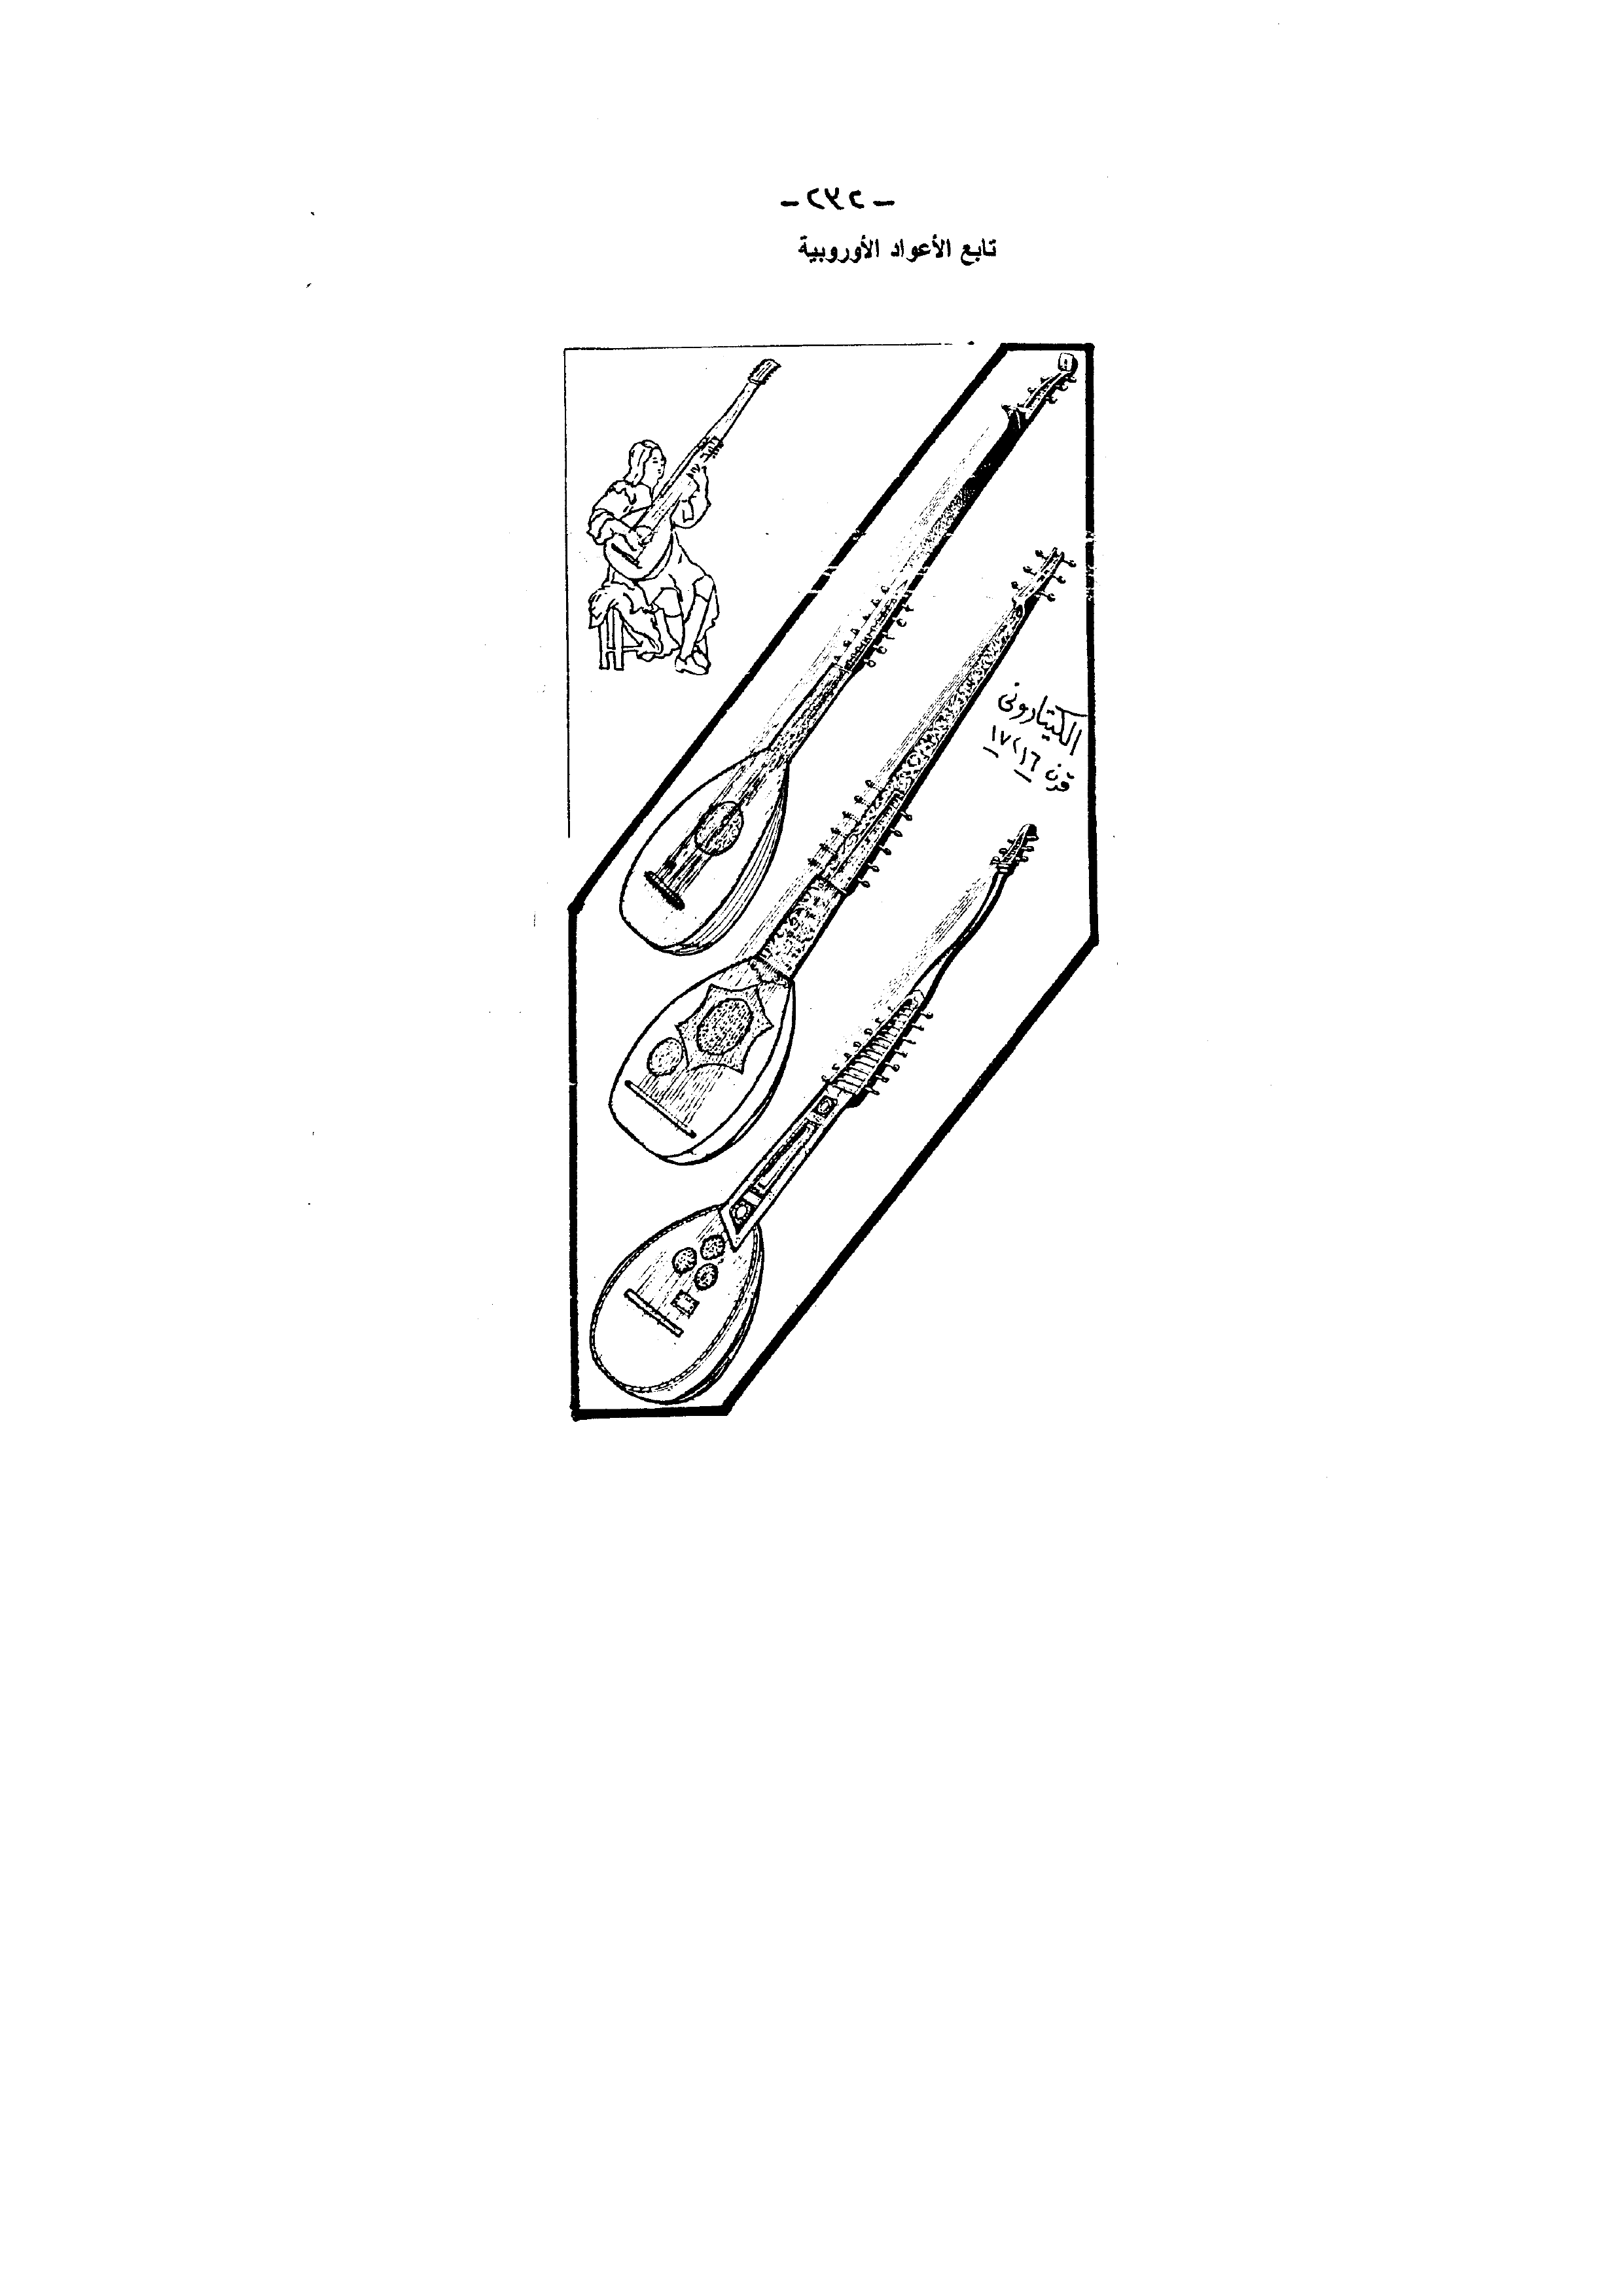 - ٢٣٢ -
تابع الأعواد الأوروبية
الكيتارونى
قرن ١٦، ١٧